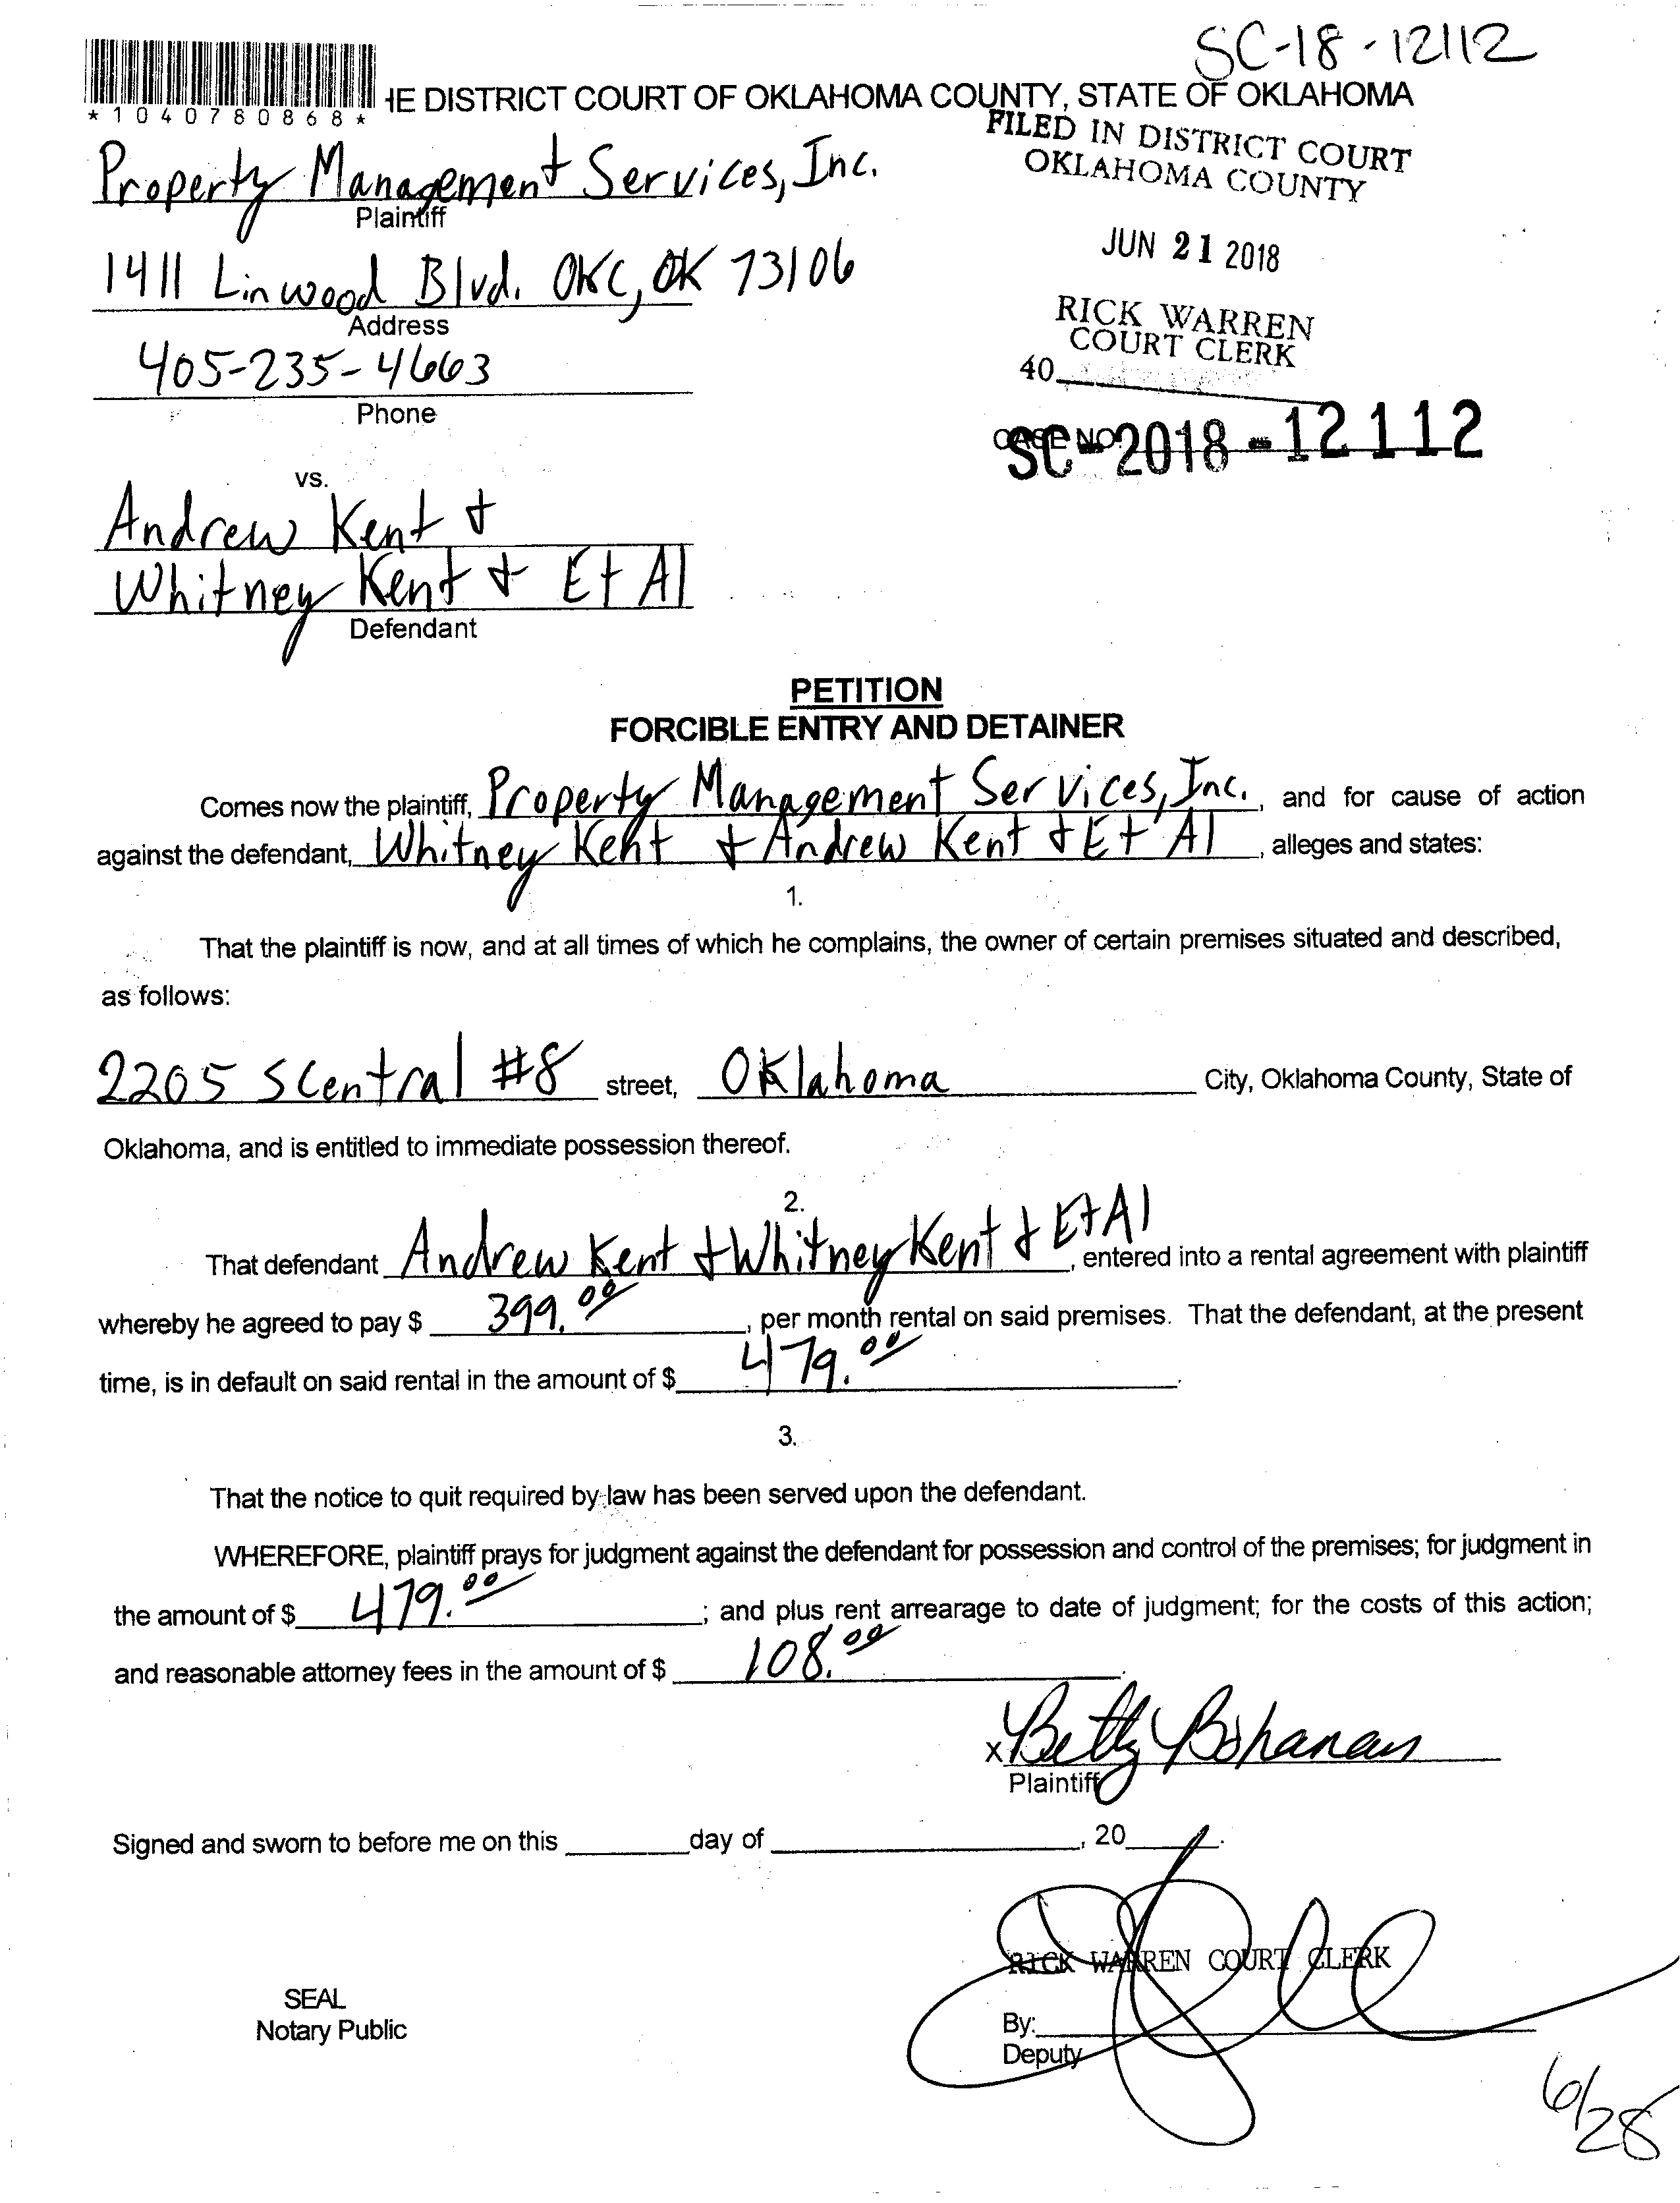 SC-18-12112
*1040780868* HE DISTRICT COURT OF OKLAHOMA COUNTY, STATE OF OKLAHOMA
FILED IN DISTRICT COURT
OKLAHOMA COUNTY
Property Management Services, Inc.
Plaintiff
JUN 21 2018
1411 Linwood Blvd. OKC, OK 73106
Address
RICK WARREN
COURT CLERK
405-235-4663
40
Phone
CASE NO.
SC-2018-12112
vs.
Andrew Kent &
Whitney Kent & Et Al
Defendant
PETITION
FORCIBLE ENTRY AND DETAINER
Comes now the plaintiff, Property Management Services, Inc., and for cause of action
against the defendant, Whitney Kent & Andrew Kent & Et Al, alleges and states:
1.
That the plaintiff is now, and at all times of which he complains, the owner of certain premises situated and described,
as follows:
2205 S Central #8 street, Oklahoma City, Oklahoma County, State of
Oklahoma, and is entitled to immediate possession thereof.
2.
That defendant Andrew Kent & Whitney Kent & Et Al, entered into a rental agreement with plaintiff
whereby he agreed to pay $ 399.00, per month rental on said premises. That the defendant, at the present
time, is in default on said rental in the amount of $ 479.00.
3.
That the notice to quit required by law has been served upon the defendant.
WHEREFORE, plaintiff prays for judgment against the defendant for possession and control of the premises; for judgment in
the amount of $ 479.00; and plus rent arrearage to date of judgment; for the costs of this action;
and reasonable attorney fees in the amount of $ 108.00.
x Betty Bohanan
Plaintiff
Signed and sworn to before me on this ____ day of ____, 20____.
RICK WARREN COURT CLERK
SEAL
Notary Public
By:
Deputy
6/28